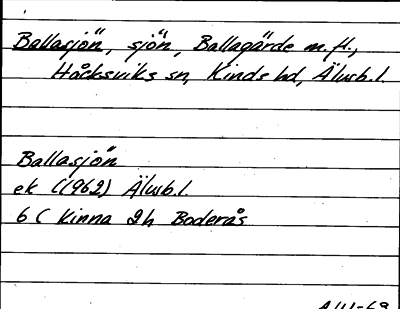 Ballasjön, sjön, Ballagärde m.fl.,
Håcksviks sn, Kinds hd, Älvsb.l.
Ballasjön
ek (1962) Älvsb.l.
6 C Kinna 2h Boderås